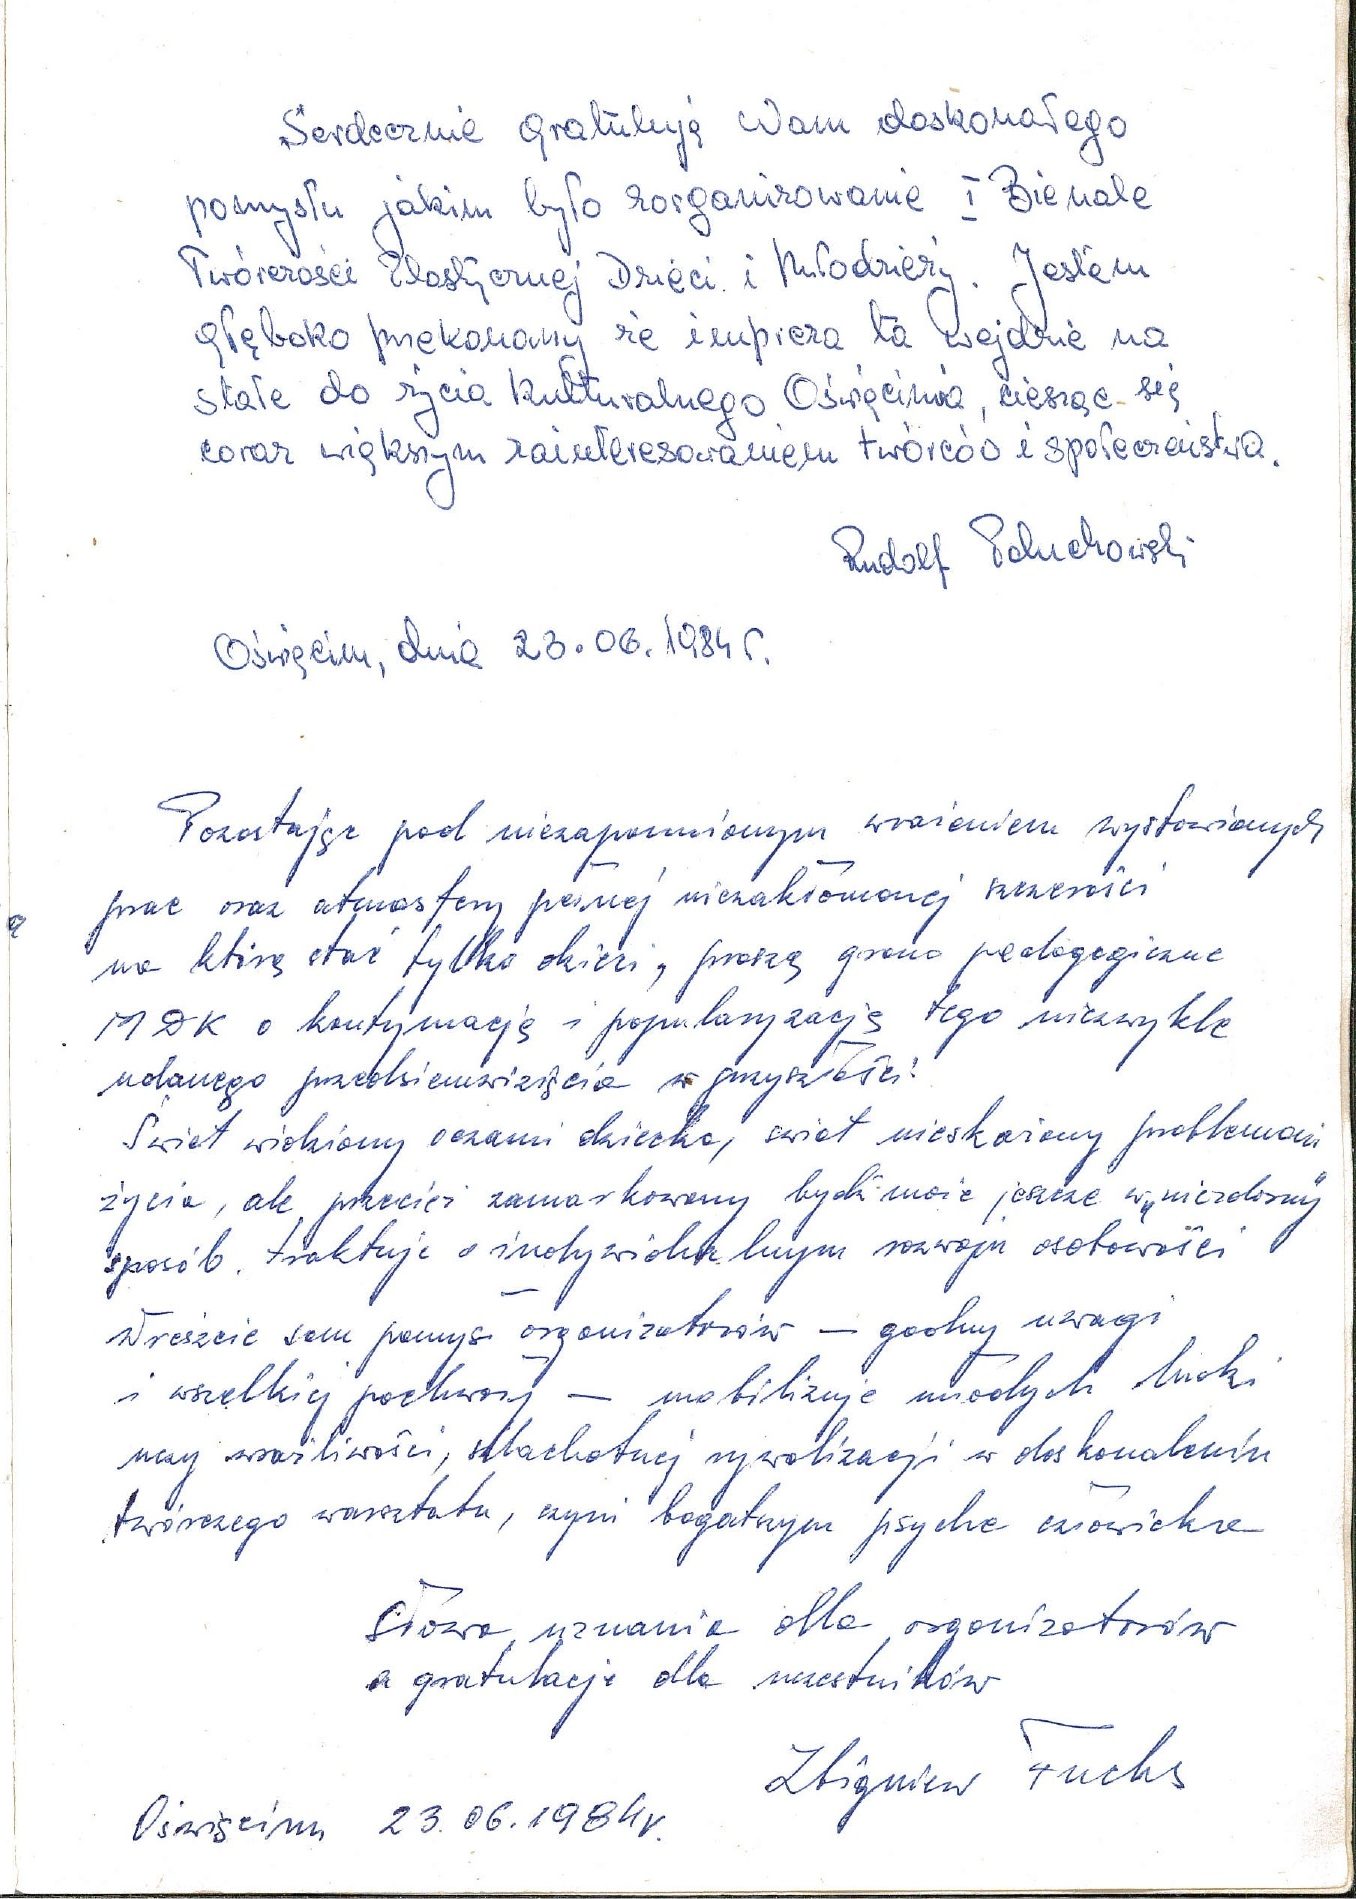 Serdecznie gratuluję Wam doskonałego
pomysłu jakim było zorganizowanie I Bienale
Twórczości Plastycznej Dzieci i Młodzieży. Jestem
głęboko przekonany że impreza ta wejdzie na
stałe do życia kulturalnego Oświęcimia, ciesząc się
coraz większym zainteresowaniem twórców i społeczeństwa.
Rudolf
Oświęcim, dnia 23.06.1984 r.
Pozostając pod niezapomnianym wrażeniem wystawionych
prac oraz atmosfery pełnej niezakłómanej szczerości
na którą stać tylko dzieci, proszę grono pedagogiczne
MDK o kontynuację i popularyzację tego niezwykle
udanego przedsięwzięcia w przyszłości!
Świat widziany oczami dziecka, świat nieskażony problemami
życia, ale przecież zamarkowany być może jeszcze w "niezdarny"
sposób. traktuje o indywidualnym rozwoju osobowości
Wreszcie sam pomysł organizatorów — godny uwagi
i wszelkiej pochwały — mobilizuje młodych ludzi
uczy wrażliwości, szlachetnej rywalizacji w doskonaleniu
twórczego warsztatu, czyni bogatszym psyche człowieka
Słowa uznania dla organizatorów
a gratulacje dla uczestników
Zbigniew Fuchs
Oświęcim 23.06.1984 r.
ą